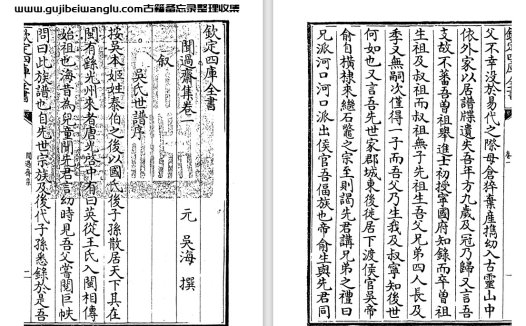 www.gujibeiwanglu.com古籍备忘录整理收集
欽定四庫全書
聞過齋集卷一
元 吳海 撰
敘
吳氏世譜序
按吳本姬姓泰伯之後以國氏後子孫散居天下其在
閩有繇光州來者唐光啓中有曰英從王氏入閩相傳
始祖也海昔為兒童聞先君言幼時見吾父嘗閱巨帙
問曰此族譜也自先世宗族及後代子孫悉錄於是吾
欽定四庫全書 聞過齋集
父不幸沒於易代之際母倉猝棄產擕幼入古靈山中
依外家以居譜牒遺失吾年方九歲及冠乃歸又言吾
支故不蕃吾曾祖舉進士初授寧國府知錄而卒曾祖
生祖及叔祖而叔祖無子先祖生吾父兄弟四人長及
季又無嗣次僅得一子而吾父乃生我及叔寧知後世
何如也又言吾先世家郡城東後徙居下渡侯官吳帝
俞自橫棣來繼石鱉之宗至則謁先君講兄弟之禮曰
兄派河口河口派出侯官吾偪族也帝俞生與先君同